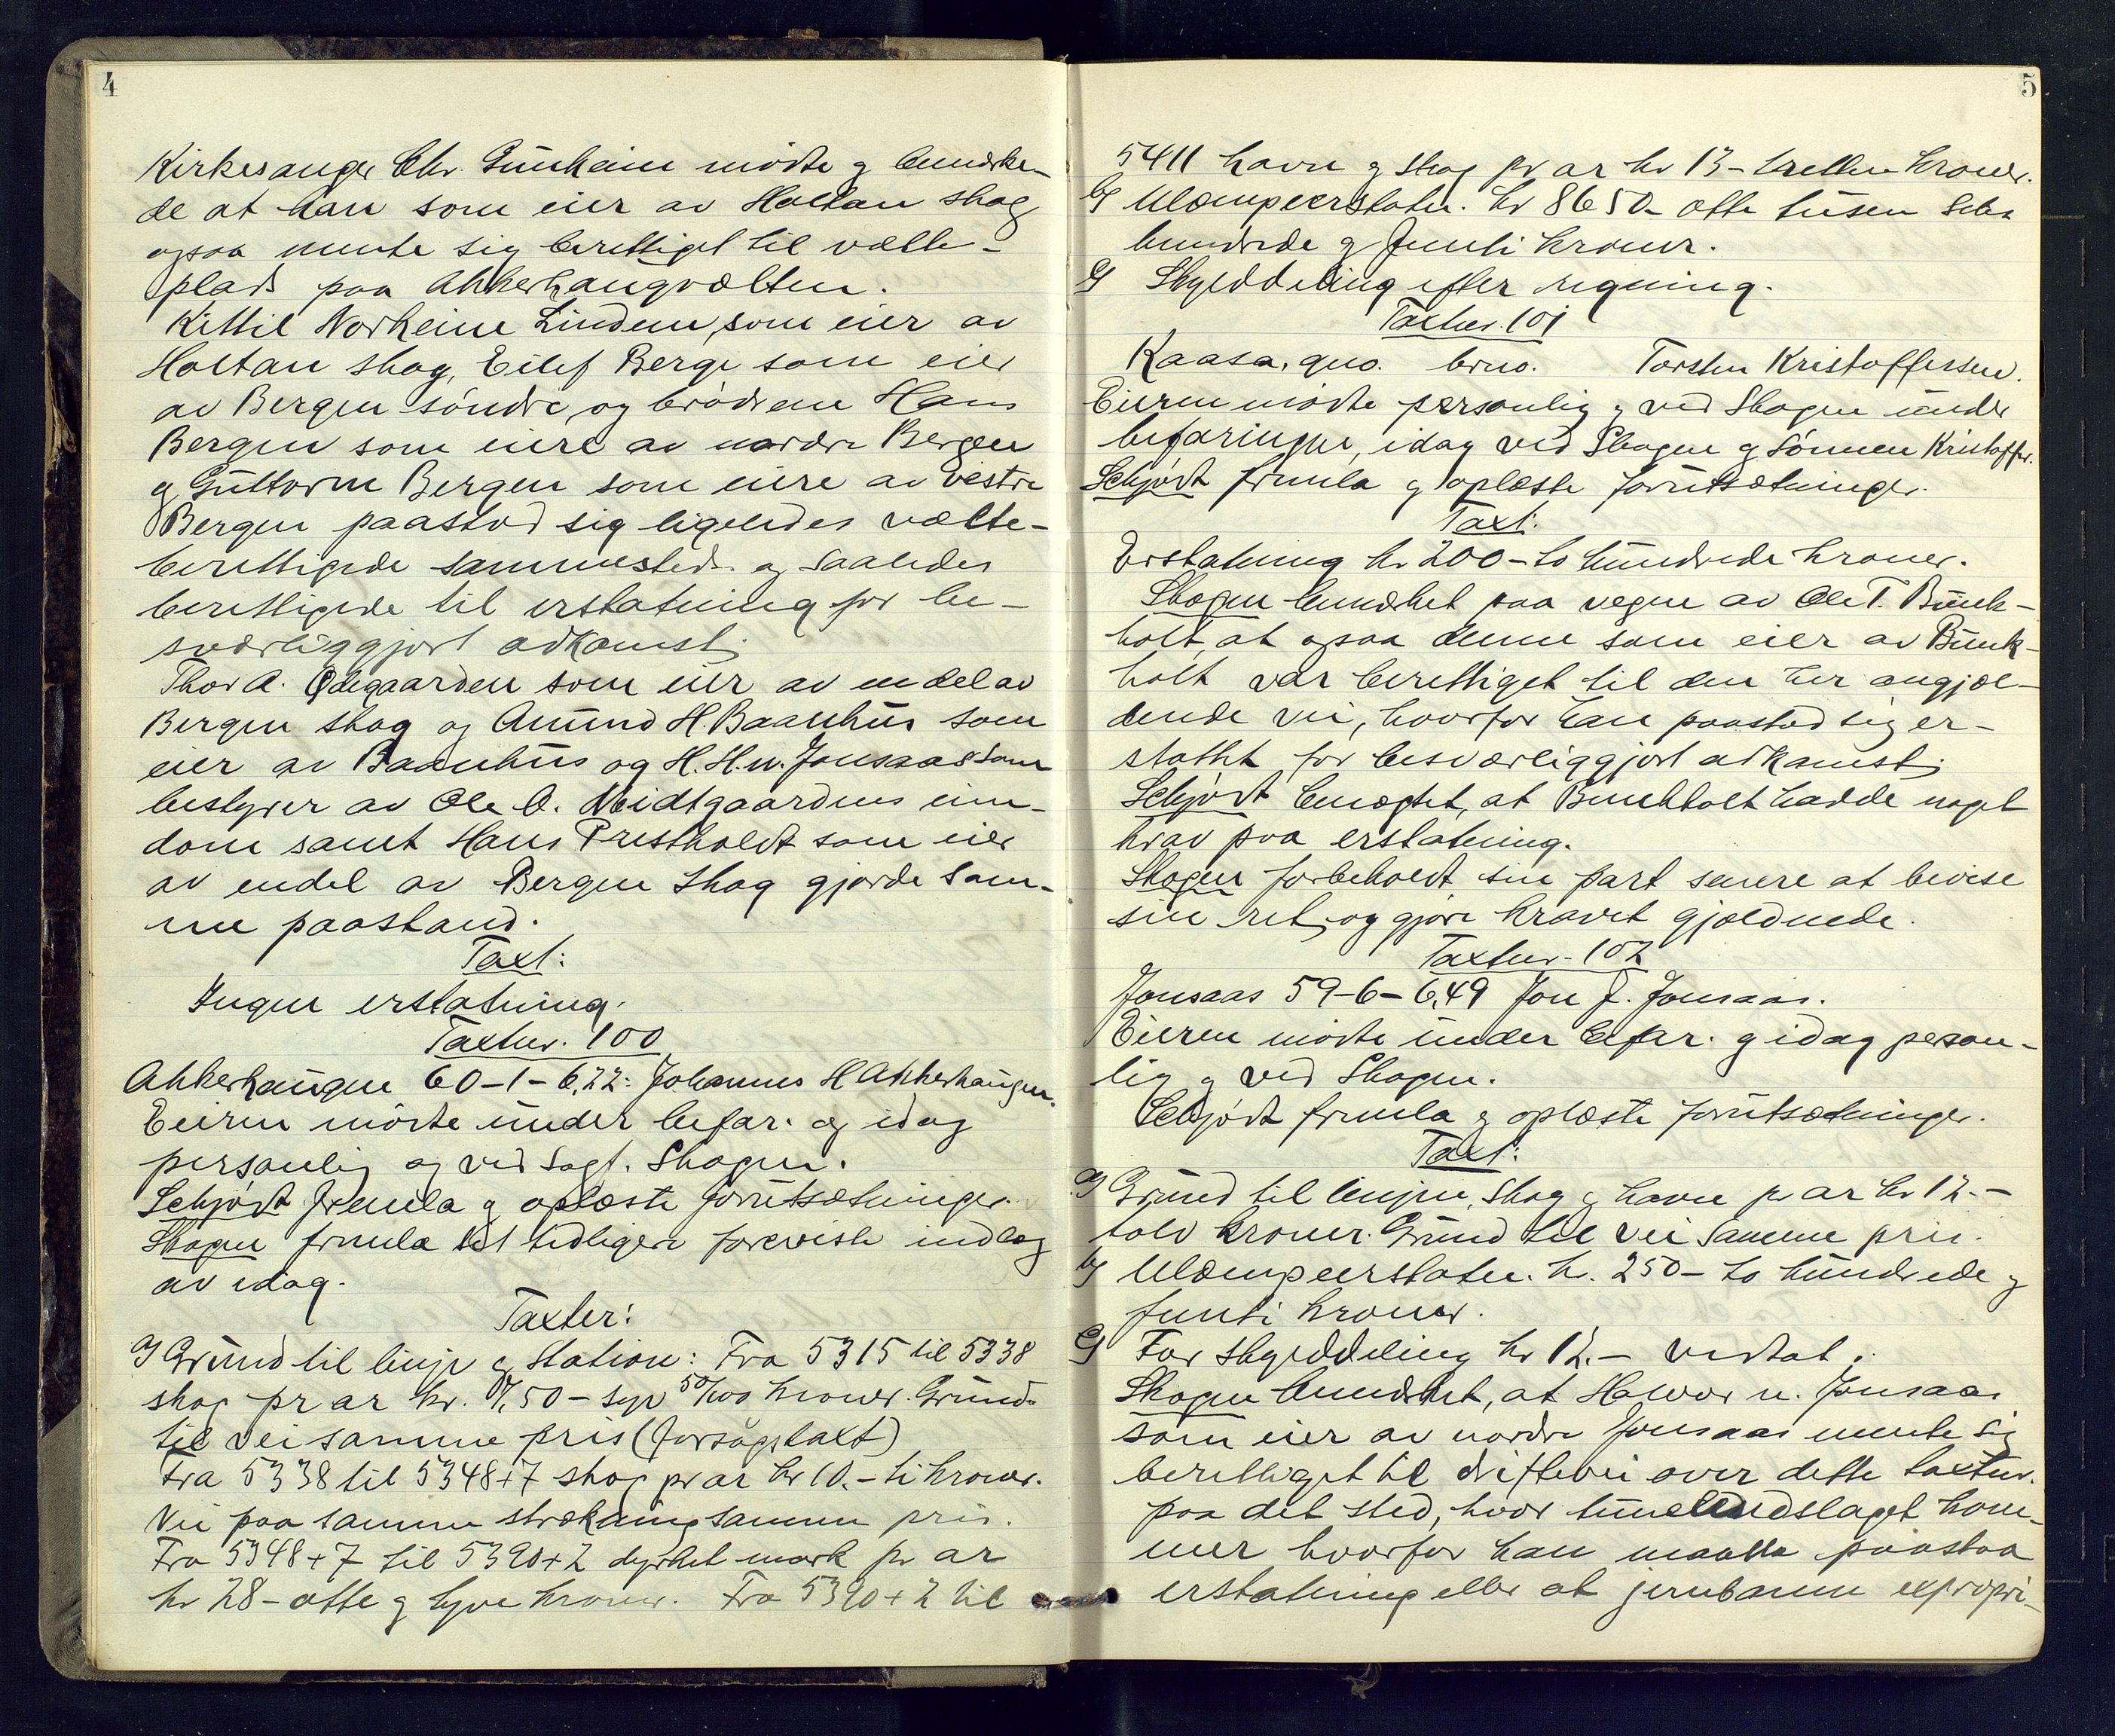 4
Kirkesanger Chr. Gunheim mødte og bemærke-
de at han som eier av Holtan skog
ogsaa mente sig berettiget til vælte-
plads paa Akkerhaugvælten.
Kittil Norheim Lindem, som eier av
Holtan skog, Eilef Berge som eier
av Bergen søndre, og brødrene Hans
Bergen som eiere av nordre Bergen
og Guttorm Bergen som eiere av vestre
Bergen paastod sig ligeledes vælte-
berettigede sammesteds og saaledes
berettigede til erstatning for be-
sværliggjort adkomst;
Thor A. Ødegaarden som eier av en del av
Bergen skog og Amund H. Baanhus som
eier av Baanhus og H. H. n. Jonsaas som
bestyrer av Ole O. Meidtgaardens eien-
dom samt Hans Prestholdt som eier
av endel av Bergen skog gjorde sam-
me paastand.
Taxt:
Ingen erstatning.
Taxtnr. 100
Akkerhaugen 60-1-6,22: Johannes H Akkerhaugen.
Eieren mødte under befar. og idag
personlig og ved sagf. Skogen.
Schjødt fremla og oplæste forutsætninger.
Skogen fremla et tidligere forevist indlæg
av idag.
Taxter:
a) Grund til linje og station: Fra 5315 til 5338
skog pr ar kr. 7,50 - syv 50/100 kroner. Grund
til vei samme pris (forsøgstaxt)
Fra 5338 til 5348+7 skog pr ar kr 10.- ti kroner.
Vei paa samme strækning samme pris.
Fra 5348+7 til 5390+2 dyrket mark pr ar
kr 28 - otte og tyve kroner. Fra 5390+2 til
5
5411 havn og skog pr ar kr 13 - tretten kroner.
b) Ulæmpeerstatn. kr 8650 - otte tusen seks
hundrede og femti kroner.
c) Skylddeling efter regning.
Taxtnr. 101
Kaasa, gno. brno. Torsten Kristoffersen.
Eieren mødte personlig og ved Skogen under
befaringen, idag ved Skogen og sønnen Kristoffer.
Schjødt fremla og oplæste forutsætninger.
Taxt.
Erstatning kr 200 - to hundrede kroner.
Skogen bemærket paa vegne av Ole T. Bunk-
holt, at ogsaa denne som eier av Bunk-
holt var berettiget til den her angjæl-
dende vei, hvorfor han paastod sig er-
stattet for besværliggjort adkomst;
Schjødt benegtet, at Bunkholt hadde noget
krav paa erstatning.
Skogen forbeholdt sin part senere at bevise
sin ret og gjøre kravet gjældende.
Taxtnr. 102
Jonsaas 59-6-6,49 Jon J. Jonsaas.
Eieren mødte under befar. og idag person-
lig og ved Skogen.
Schjødt fremla og oplæste forutsætninger.
Taxt:
a) Grund til linjen, skog og havn pr ar kr 12.-
tolv kroner. Grund til vei samme pris.
b) Ulæmpeerstatn. kr. 250 - to hundrede og
femti kroner.
c) For skylddeling kr 12.- vedtat.
Skogen bemærket, at Halvor n. Jonsaas
som eier av nordre Jonsaas mente sig
berettiget til driftevei over dette taxtnr.
paa det sted, hvor tunelindslaget kom-
mer hvorfor han maatte paastaa
erstatning eller at jernbanen expropri-